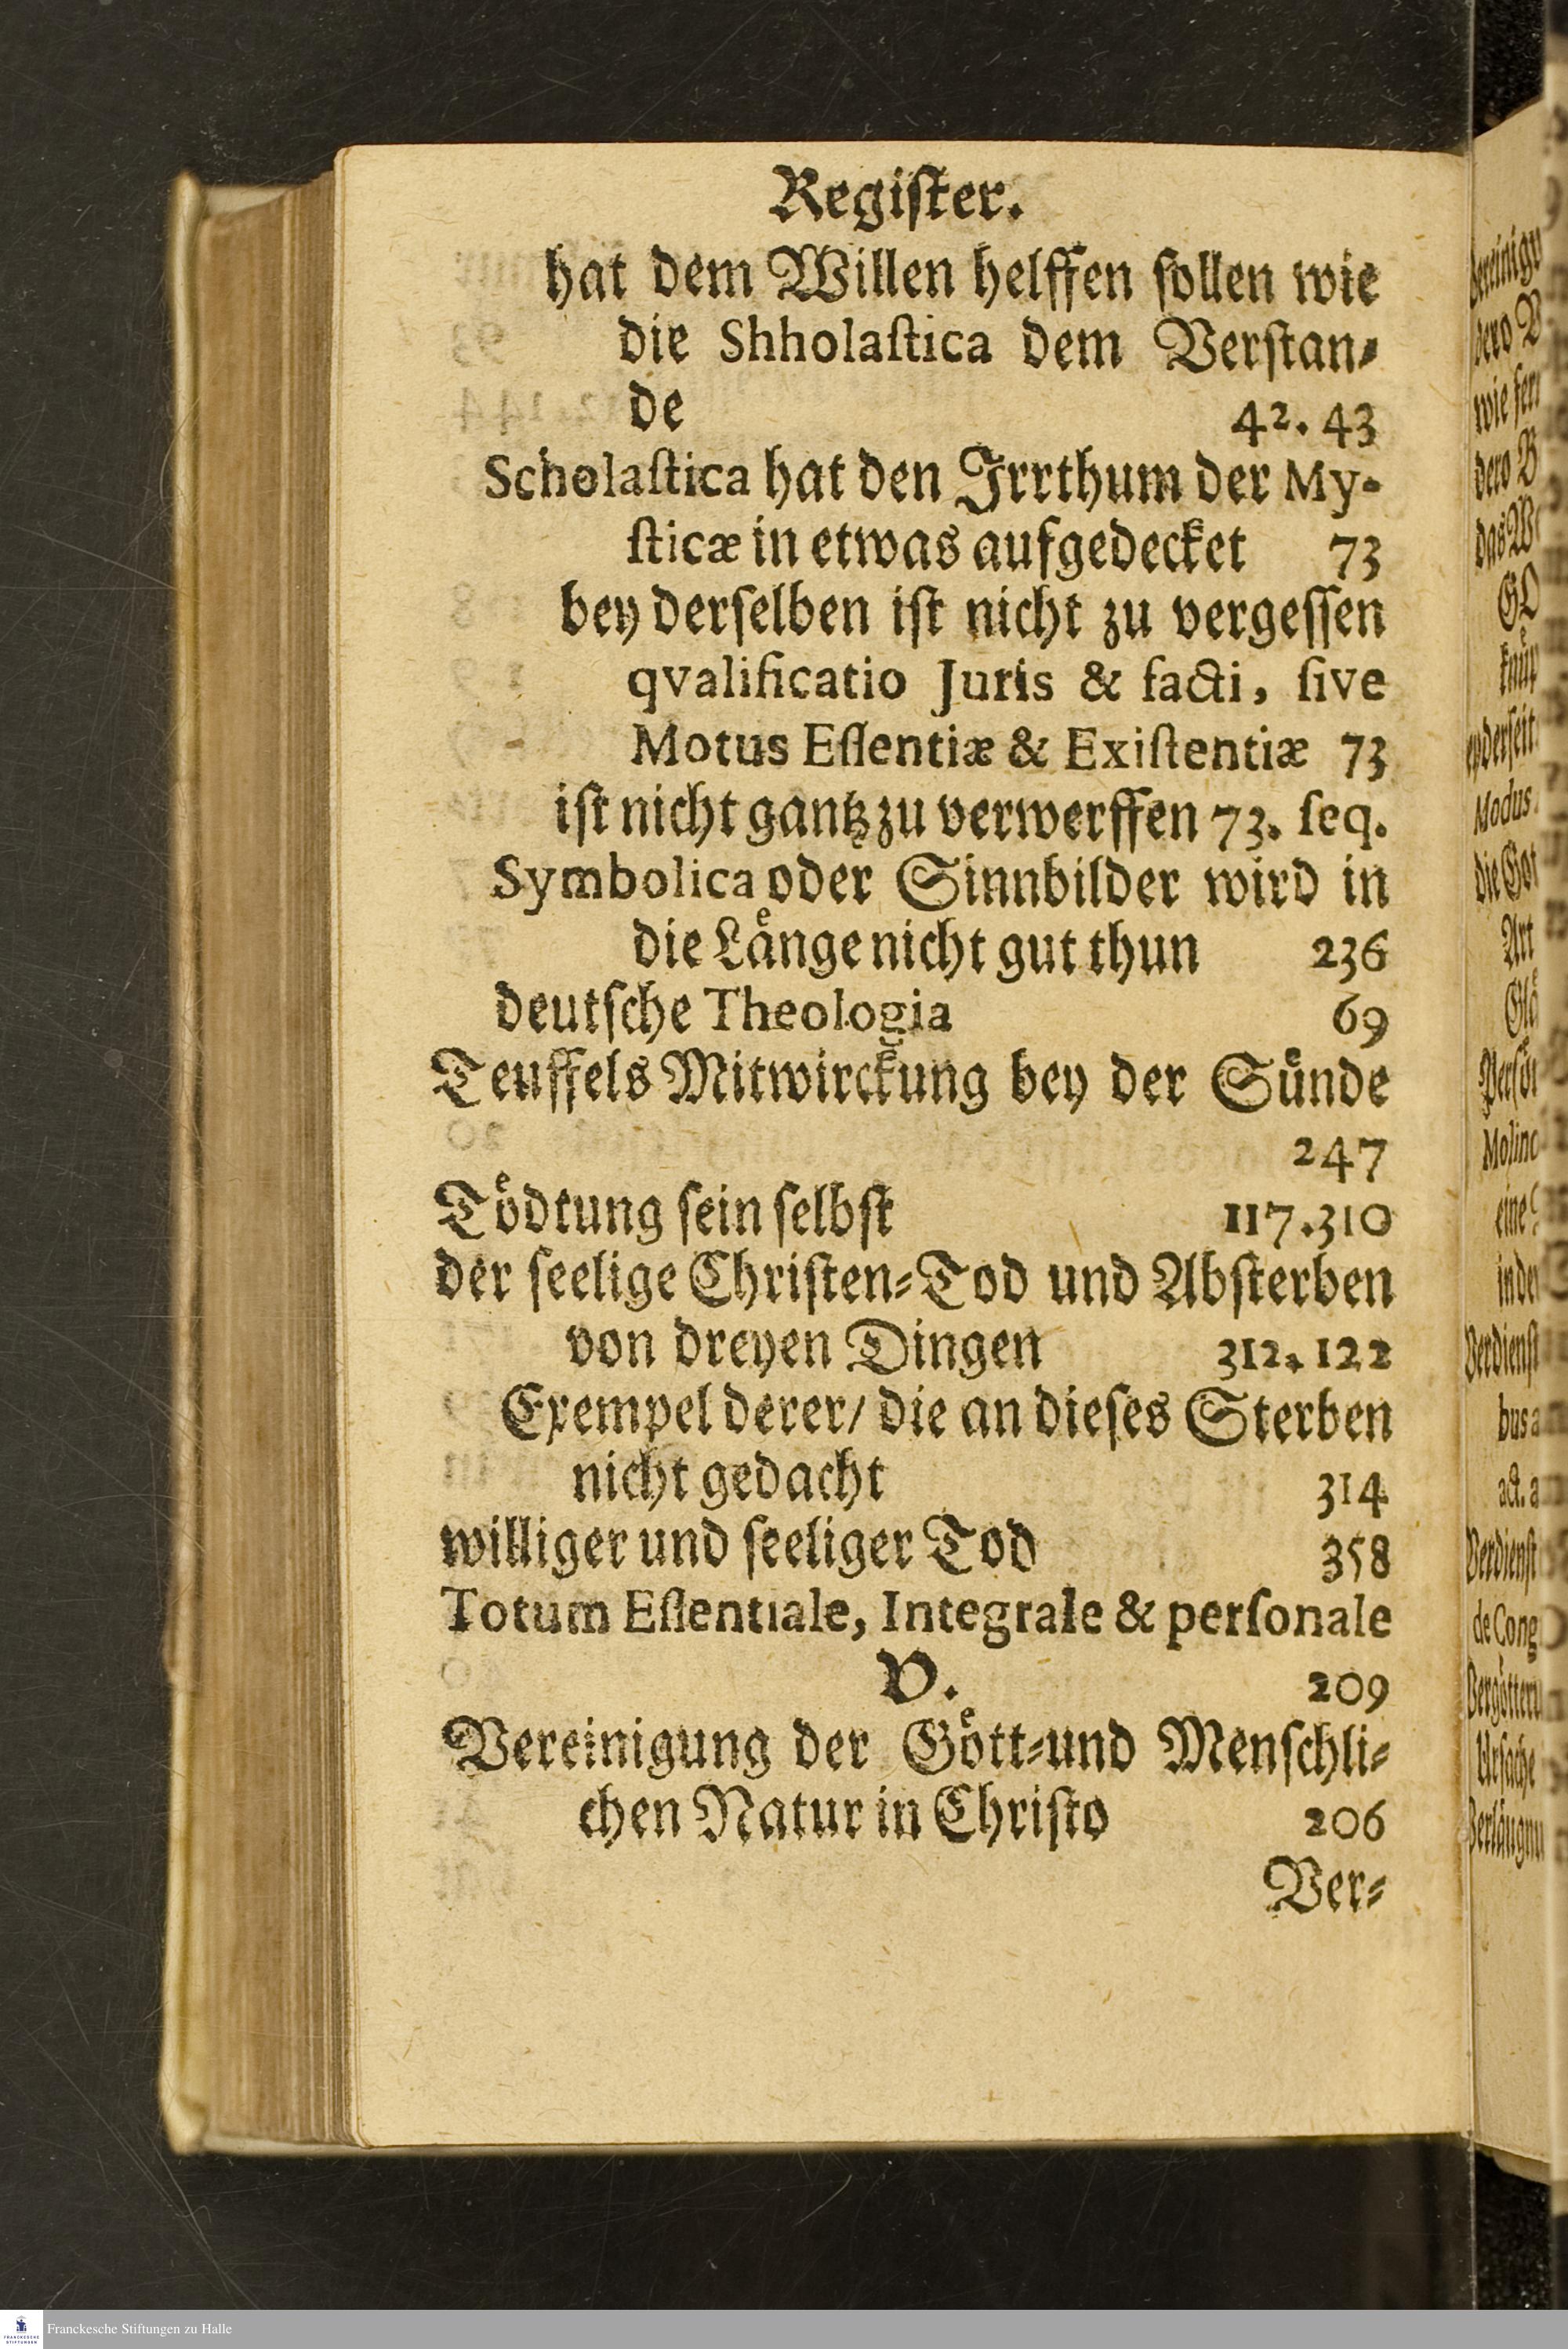 Regiſter.
hat dem Willen helffen ſollen wie
die Shholaſtica dem Verſtan⸗
de 42. 43
Scholaſtica hat den Irrthum der My-
ſticæ in etwas aufgedecket 73
bey derſelben iſt nicht zu vergeſſen
qvalificatio Juris & facti, ſive
Motus Eſſentiæ & Exiſtentiæ 73
iſt nicht gantz zu verwerffen 73. ſeq.
Symbolica oder Sinnbilder wird in
die Laͤnge nicht gut thun 236
deutſche Theologia 69
Teuffels Mitwirckung bey der Suͤnde
247
Toͤdtung ſein ſelbſt 117.310
der ſeelige Chriſten⸗Tod und Abſterben
von dreyen Dingen 312. 122
Exempel derer/ die an dieſes Sterben
nicht gedacht 314
williger und ſeeliger Tod 358
Totum Eſſentiale, Integrale & perſonale
V. 209
Vereinigung der Goͤtt⸗und Menſchli⸗
chen Natur in Chriſto 206
Ver⸗
dero
wie
dero
Modus
Art
eine
Verdienſt
bus
act. a
Verdienſt
de Cong
Urſache
Franckesche Stiftungen zu Halle
FRANCKESCHE
STIFTUNGEN